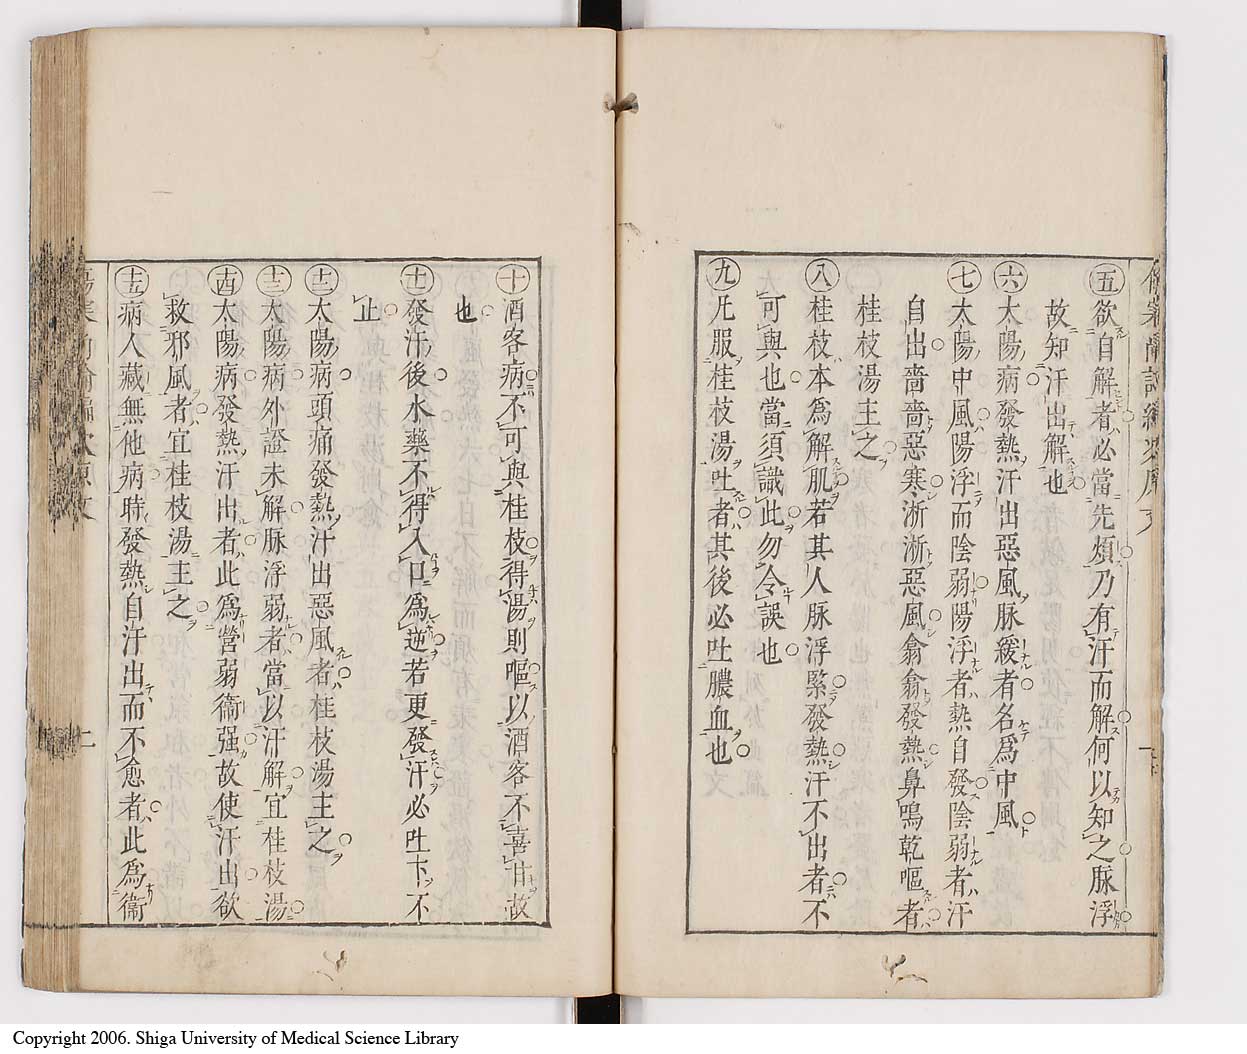 ㊄欲自解者必當先煩乃有汗而解何以知之脉浮
故知汗出解也
㊅太陽病發熱汗出惡風脉緩者名爲中風
㊆太陽中風陽浮而陰弱陽浮者熱自發陰弱者汗
自出嗇嗇惡寒淅淅惡風翕翕發熱鼻鳴乾嘔者
桂枝湯主之
㊇桂枝本爲解肌若其人脉浮緊發熱汗不出者不
可與也當須識此勿令誤也
㊈凡服桂枝湯吐者其後必吐膿血也
㊉酒客病不可與桂枝得湯則嘔以酒客不喜甘故
也
⑪發汗後水藥不得入口爲逆若更發汗必吐下不
止
⑫太陽病頭痛發熱汗出惡風者桂枝湯主之
⑬太陽病外證未解脉浮弱者當以汗解宜桂枝湯
⑭太陽病發熱汗出者此爲營弱衞强故使汗出欲
救邪風者宜桂枝湯主之
⑮病人藏無他病時發熱自汗出而不愈者此爲衞
Copyright 2006. Shiga University of Medical Science Library